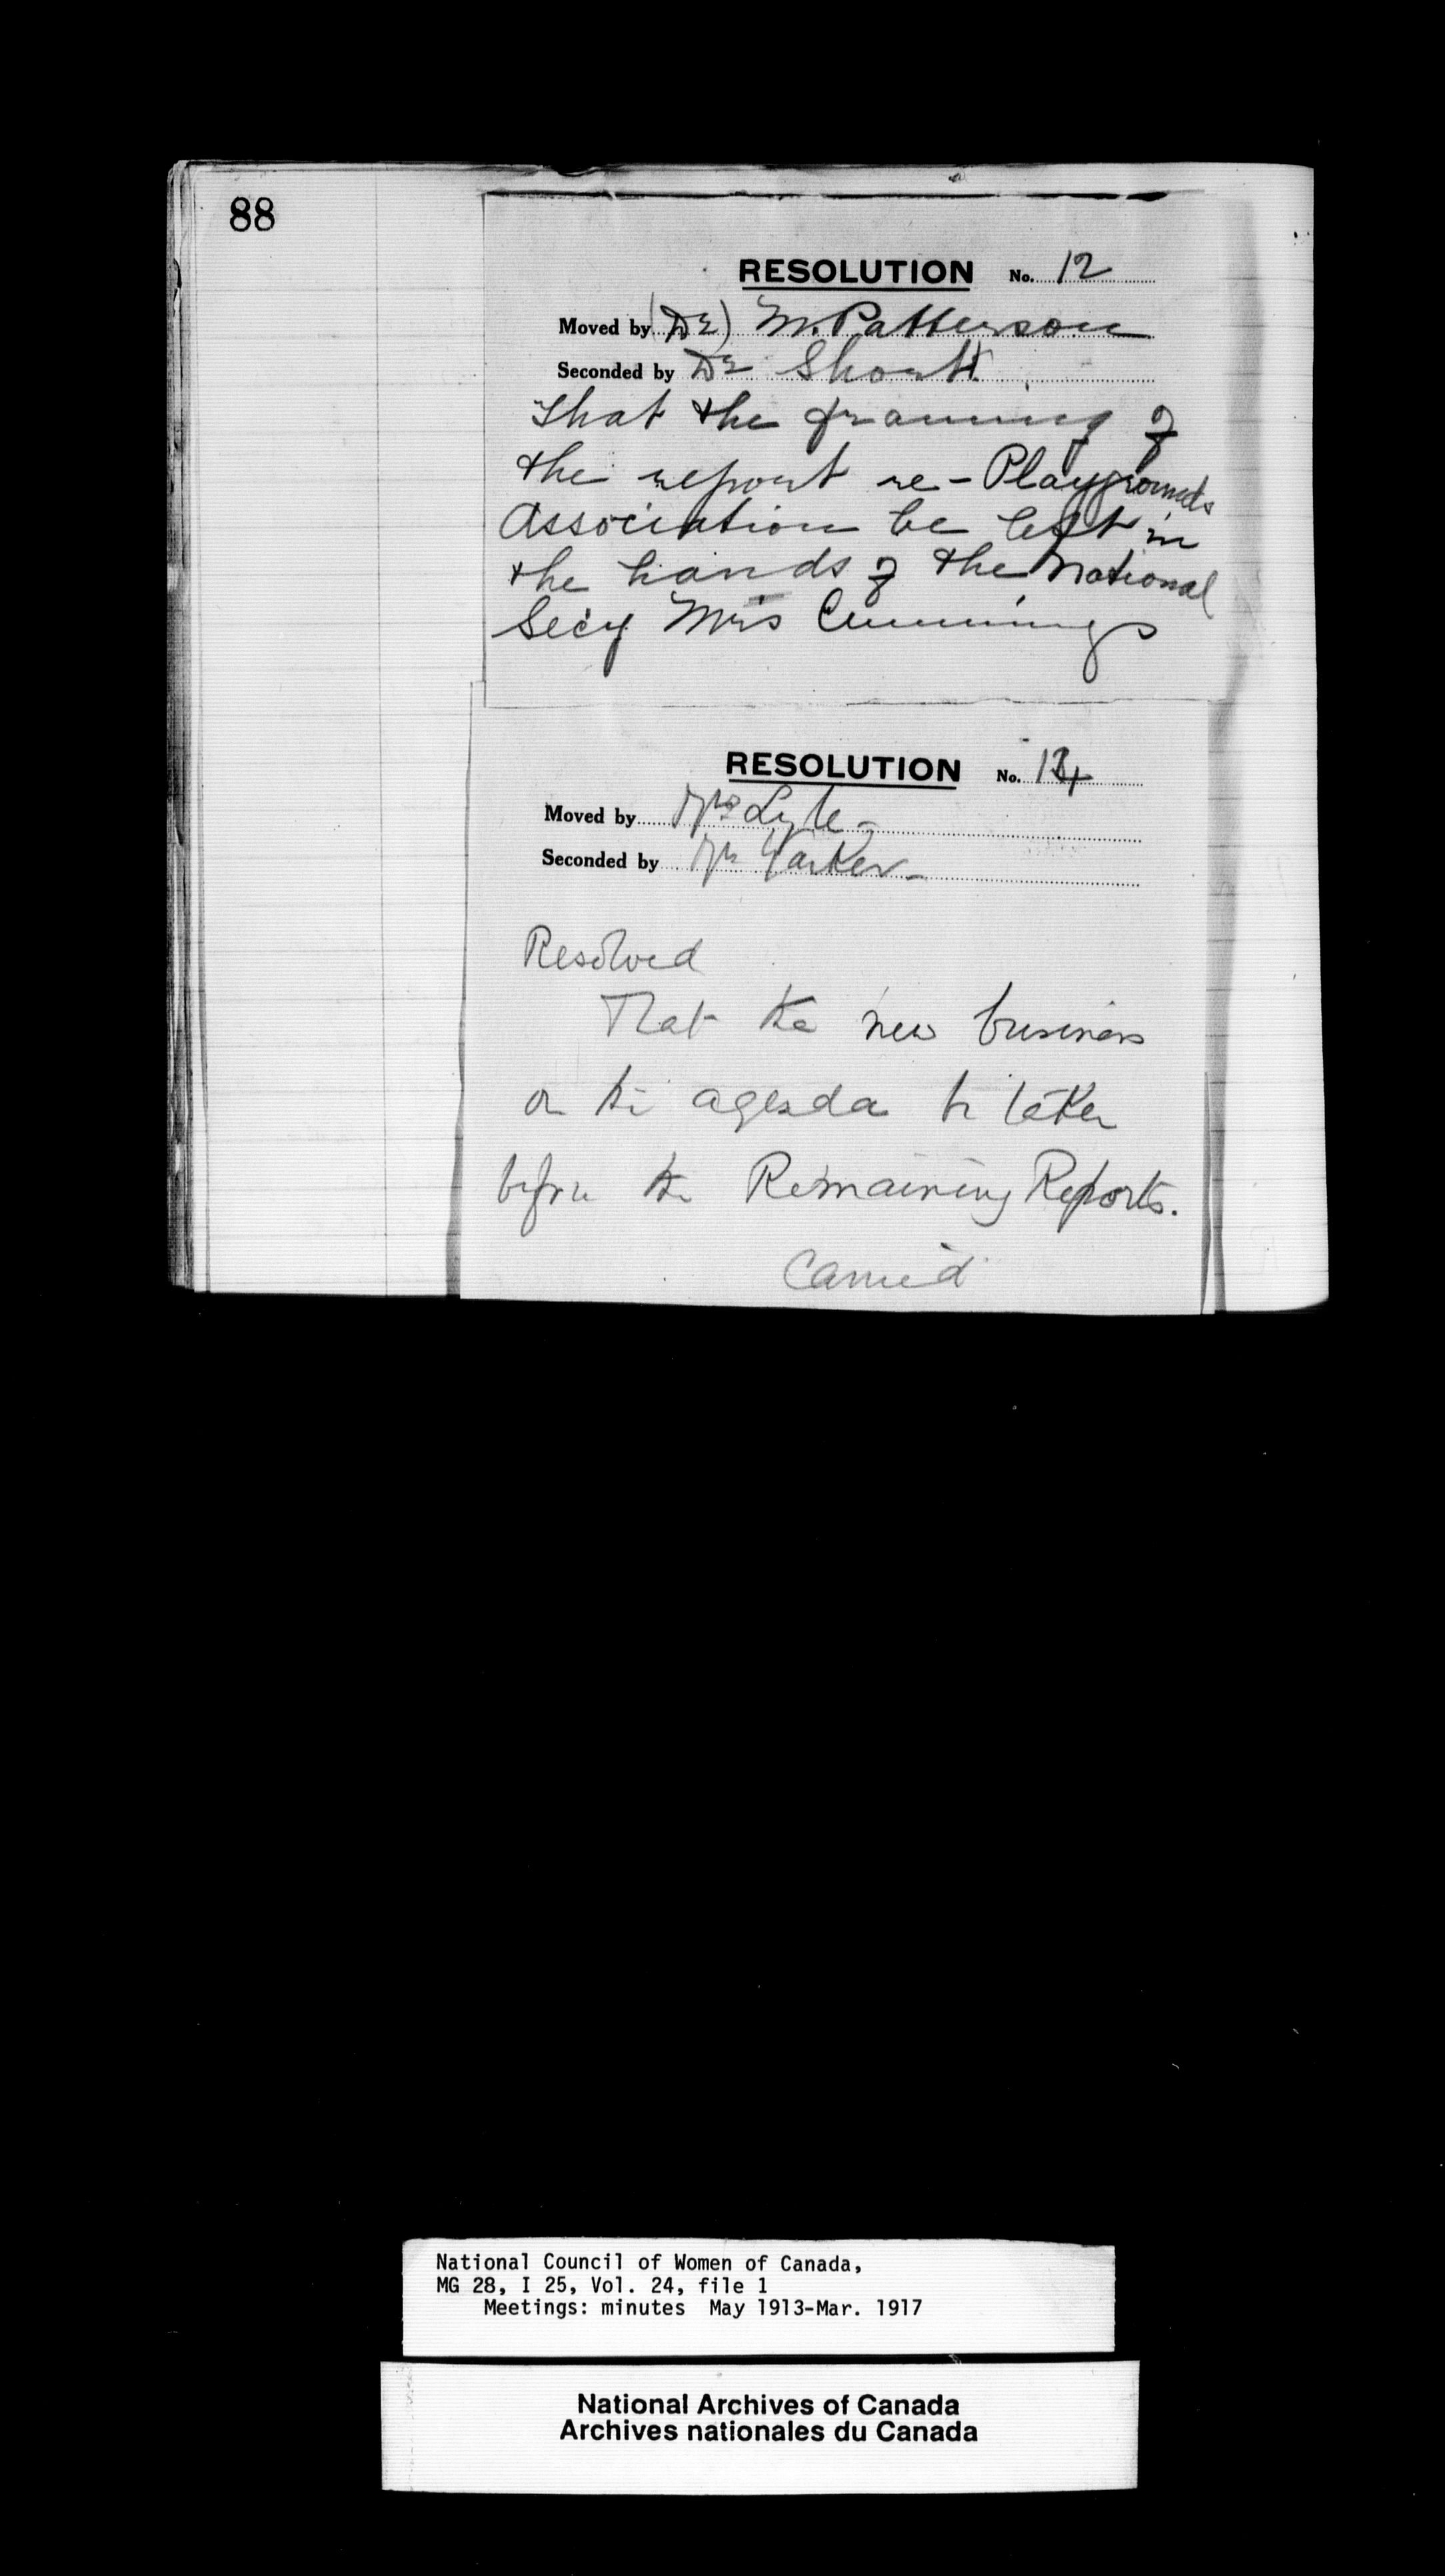 88
RESOLUTION No. 12
Moved by (Dr) M. Patterson
Seconded by Dr Shortt
That the framing of
the report re-Playgrounds
Association be left in
the hands of the National
Secy Mrs Cummings
RESOLUTION No. 14
Moved by Mrs Lyle-
Seconded by Mrs Yarker-
Resolved
That the new business
on the agenda be taken
before the Remaining Reports.
Carried
National Council of Women of Canada,
MG 28, I 25, Vol. 24, file 1
Meetings: minutes May 1913-Mar. 1917
National Archives of Canada
Archives nationales du Canada